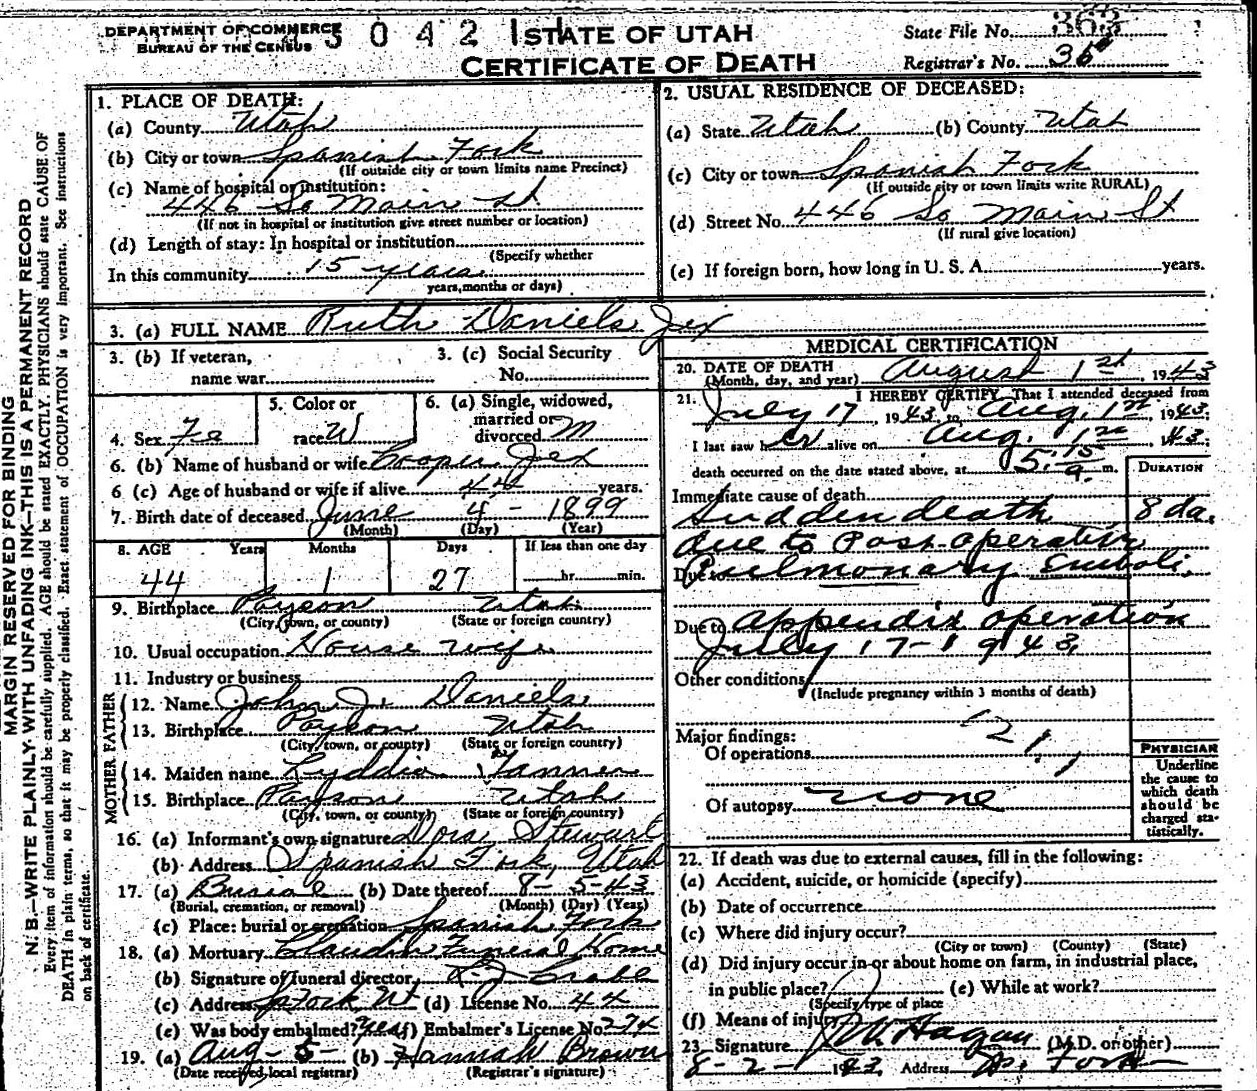 DEPARTMENT OF COMMERCE
BUREAU OF THE CENSUS
3 0 4 2 1
STATE OF UTAH
CERTIFICATE OF DEATH
State File No. 363
Registrar's No. 36
MARGIN RESERVED FOR BINDING
N. B.—WRITE PLAINLY WITH UNFADING INK—THIS IS A PERMANENT RECORD
Every item of information should be carefully supplied. AGE should be stated EXACTLY. PHYSICIANS should state CAUSE OF
DEATH in plain terms, so that it may be properly classified. Exact statement of OCCUPATION is very important. See instructions
on back of certificate.
1. PLACE OF DEATH:
(a) County Utah
(b) City or town Spanish Fork
(If outside city or town limits name Precinct)
(c) Name of hospital or institution:
446 So Main St
(If not in hospital or institution give street number or location)
(d) Length of stay: In hospital or institution
(Specify whether
In this community 15 years
years, months or days)
2. USUAL RESIDENCE OF DECEASED:
(a) State Utah (b) County Utah
(c) City or town Spanish Fork
(If outside city or town limits write RURAL)
(d) Street No. 446 So Main St
(If rural give location)
(e) If foreign born, how long in U. S. A. years.
3. (a) FULL NAME Ruth Daniels Jex
3. (b) If veteran,
name war
3. (c) Social Security
No.
4. Sex Fe
5. Color or
race W
6. (a) Single, widowed,
married or
divorced M
6. (b) Name of husband or wife Cooper Jex
6 (c) Age of husband or wife if alive 44 years.
7. Birth date of deceased June 4 - 1899
(Month) (Day) (Year)
8. AGE Years Months Days If less than one day
44 1 27 hr. min.
9. Birthplace Payson Utah
(City, town, or county) (State or foreign country)
10. Usual occupation House wife
11. Industry or business
FATHER
12. Name John J. Daniels
13. Birthplace Payson Utah
(City, town, or county) (State or foreign country)
MOTHER
14. Maiden name Lyddia Tanner
15. Birthplace Payson Utah
(City, town, or county) (State or foreign country)
16. (a) Informant's own signature Dora Stewart
(b) Address Spanish Fork, Utah
17. (a) Burial (b) Date thereof 8-5-43
(Burial, cremation, or removal) (Month) (Day) (Year)
(c) Place: burial or cremation Spanish Fork
18. (a) Mortuary Claudin Funeral Home
(b) Signature of funeral director
(c) Address Sp Fork Ut (d) License No. 44
(e) Was body embalmed? yes (f) Embalmer's License No. 274
19. (a) Aug - 5 - (b) Hannah Brown
(Date received local registrar) (Registrar's signature)
MEDICAL CERTIFICATION
20. DATE OF DEATH
(Month, day, and year) August 1st, 1943
21. I HEREBY CERTIFY, That I attended deceased from
July 17, 1943, to Aug. 1st, 1943;
I last saw her alive on Aug. 1st, 43;
death occurred on the date stated above, at 5:15 a. m.
DURATION
Immediate cause of death
Sudden death 8 da.
due to Post-operative
Due to Pulmonary Emboli,
Due to Appendix operation
July 17-1943.
Other conditions
(Include pregnancy within 3 months of death)
Major findings:
Of operations
Of autopsy none
PHYSICIAN
Underline
the cause to
which death
should be
charged sta-
tistically.
22. If death was due to external causes, fill in the following:
(a) Accident, suicide, or homicide (specify)
(b) Date of occurrence
(c) Where did injury occur?
(City or town) (County) (State)
(d) Did injury occur in or about home on farm, in industrial place,
in public place? (e) While at work?
(Specify type of place
(f) Means of injury
23 Signature M Hagan (M.D. or other)
8-2-1943. Address Sp. Fork